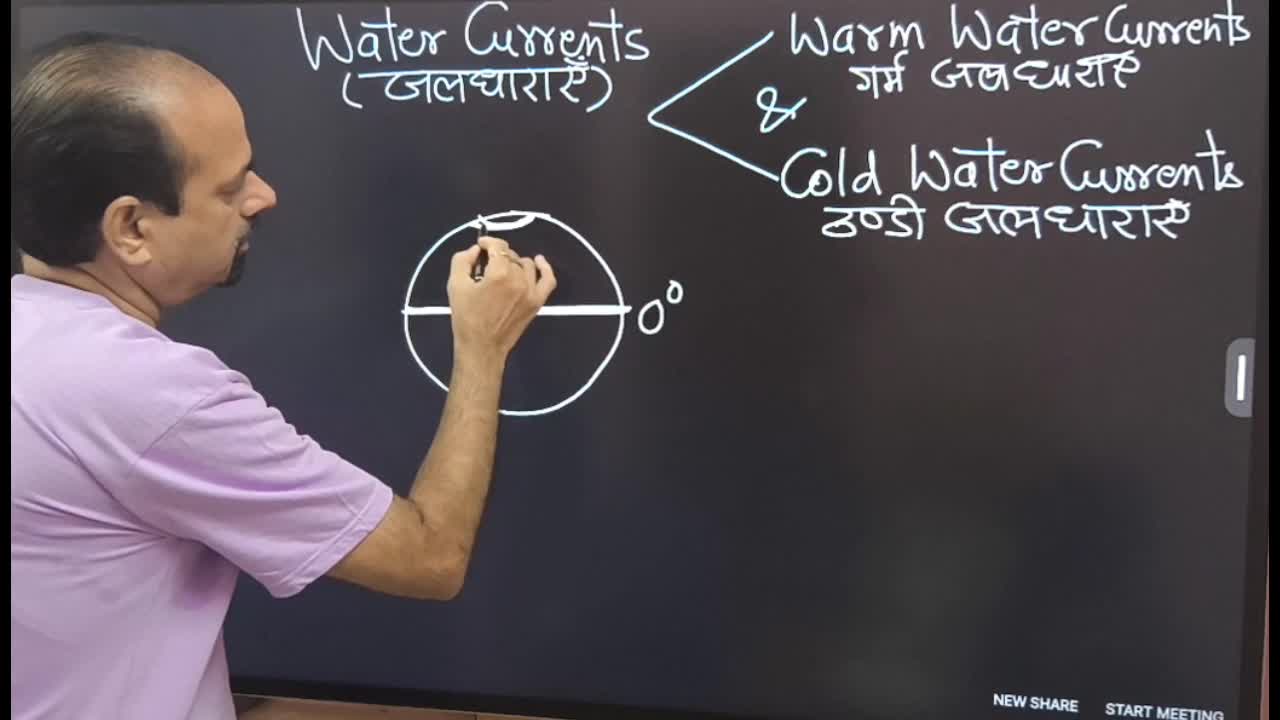 Water Currents
(जलधाराएँ)
Warm Water Currents
गर्म जलधाराएँ
&
Cold Water Currents
ठण्डी जलधाराएँ
0°
NEW SHARE
START MEETING